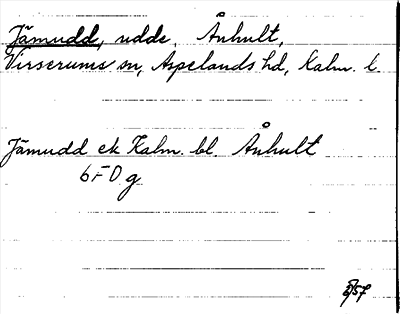 Jämudd, udde, Ånhult,
Virserums sn, Aspelands hd, Kalm. l.
Jämudd ek Kalm. bl. Ånhult
6F0g
3/57